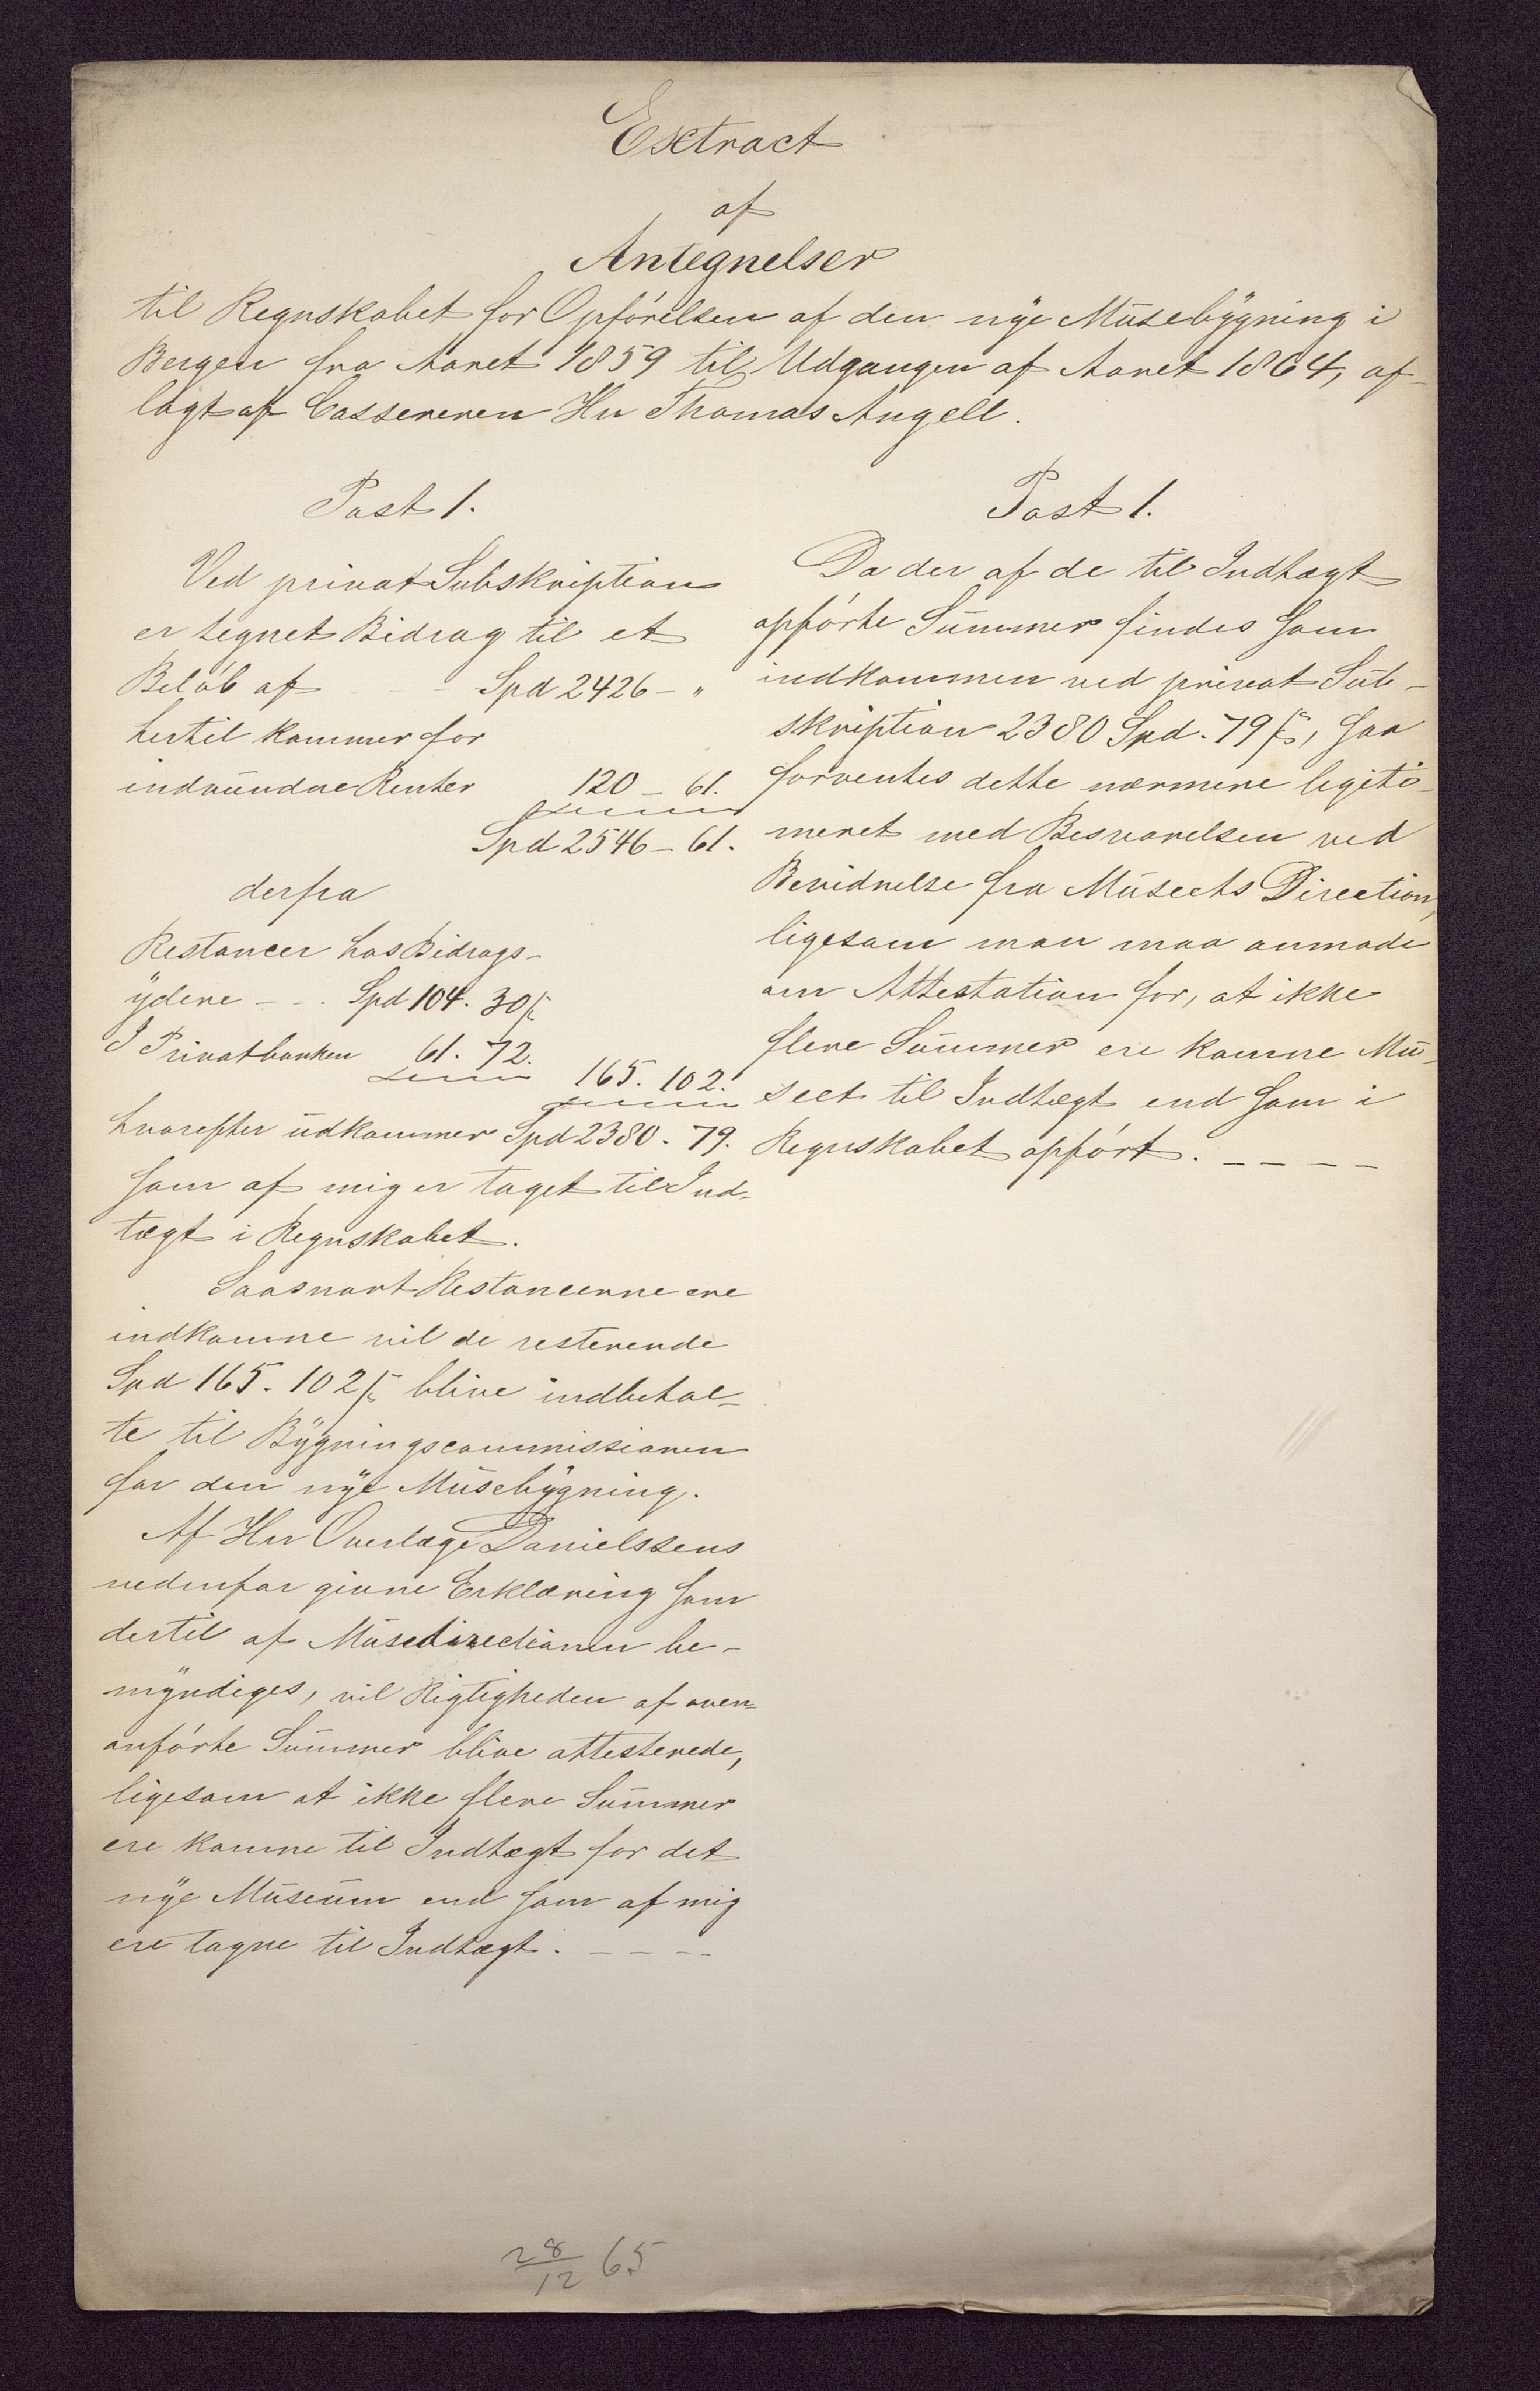 Extract
af
Antegnelser
til Regnskabet for Opförelsen af den nye Musebygning i
Bergen fra Aaret 1859 til Udgangen af Aaret 1864, af-
lagt af Cassereren Hr Thomas Angell.
Post 1.
Ved privat Subskription
er tegnet Bidrag til et
Belöb af - - Spd 2426 - "
hertil kommer for
indvundne Renter 120 - 61.
Spd 2546 - 61.
derfra
Restancer hos Bidrags-
ydere - - . Spd 104. 30 ß
I Privatbanken 61. 72.
165. 102.
hvorefter udkommer Spd 2380. 79.
som af mig er taget til Ind-
tægt i Regnskabet.
Saasnart Restancerne ere
indkomne vil de resterende
Spd 165. 102 ß blive indbetal-
te til Bygningscommissionen
for den nye Musebygning.
Af Hr Overlæge Danielssens
nedenfor givne Erklæring som
dertil af Musedirectionen be-
myndiges, vil Rigtigheden af oven-
anförte Summer blive attesterede,
ligesom at ikke flere Summer
ere komne til Indtægt for det
nye Museum end som af mig
ere tagne til Indtægt. - - - -
Post 1.
Da der af de til Indtægt
opförte Summer findes som
indkommen ved privat Sub-
skription 2380 Spd. 79 ß, saa
forventes dette nærmere legiti-
meret med Besvarelsen ved
Bevidnelse fra Museets Direction,
ligesom man maa anmode
om Attestation for, at ikke
flere Summer ere komne Mu-
seet til Indtægt end som i
Regnskabet opfört. - - - -
28/12 65